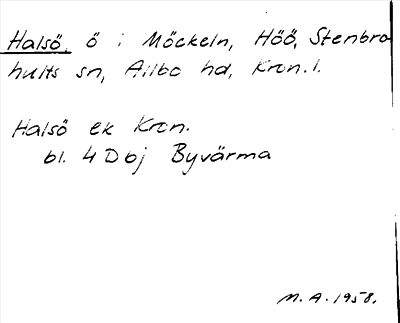 Halsö, ö i Möckeln, Höö, Stenbro-
hults sn, Allbo hd, Kron. l.
Halsö ek Kron.
bl. 4 D bj Byvärma
M. A. 1958.